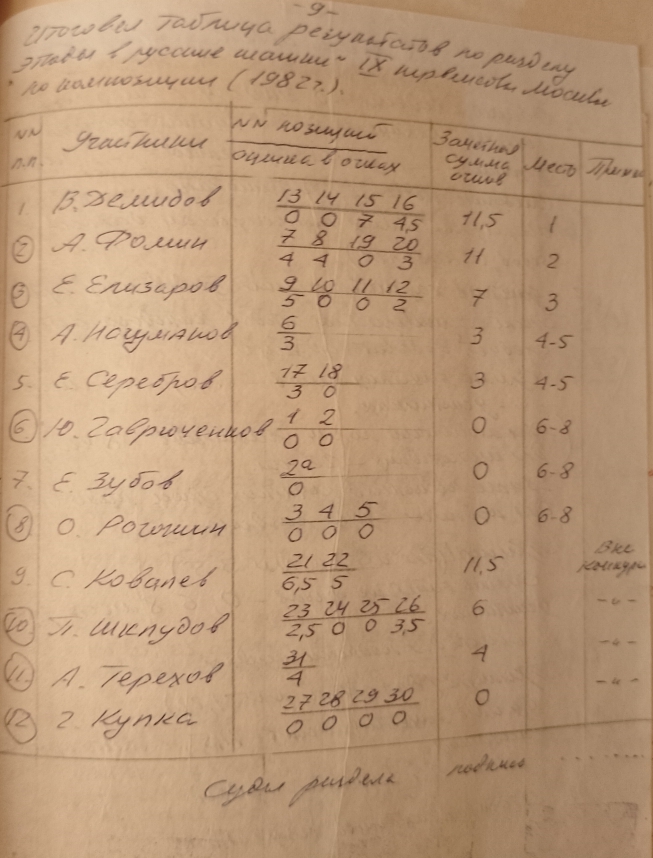 -9-
Итоговая таблица результатов по разделу
"Этюды в русские шашки" IX первенства Москвы
по композиции (1982г.).
NN п.п. Участники NN позиций / оценка в очках Зачетная сумма очков Место Примеч.
1. В. Демидов 13 14 15 16 / 0 0 7 4,5 11,5 1
2 А. Фомин 7 8 19 20 / 4 4 0 3 11 2
3 Е. Елизаров 9 10 11 12 / 5 0 0 2 7 3
4 А. Нагуманов 6 / 3 3 4-5
5. Е. Серебров 17 18 / 3 0 3 4-5
6 Ю. Гаврюченков 1 2 / 0 0 0 6-8
7. Е. Зубов 2а / 0 0 6-8
8 О. Рогожин 3 4 5 / 0 0 0 0 6-8
9. С. Ковалев 21 22 / 6,5 5 11,5 Вне конкурса
10. П. Шклудов 23 24 25 26 / 2,5 0 0 3,5 6 -"-
11. А. Терехов 31 / 4 4 -"-
12. Г. Купка 27 28 29 30 / 0 0 0 0 0 -"-
Судья раздела подпись .......